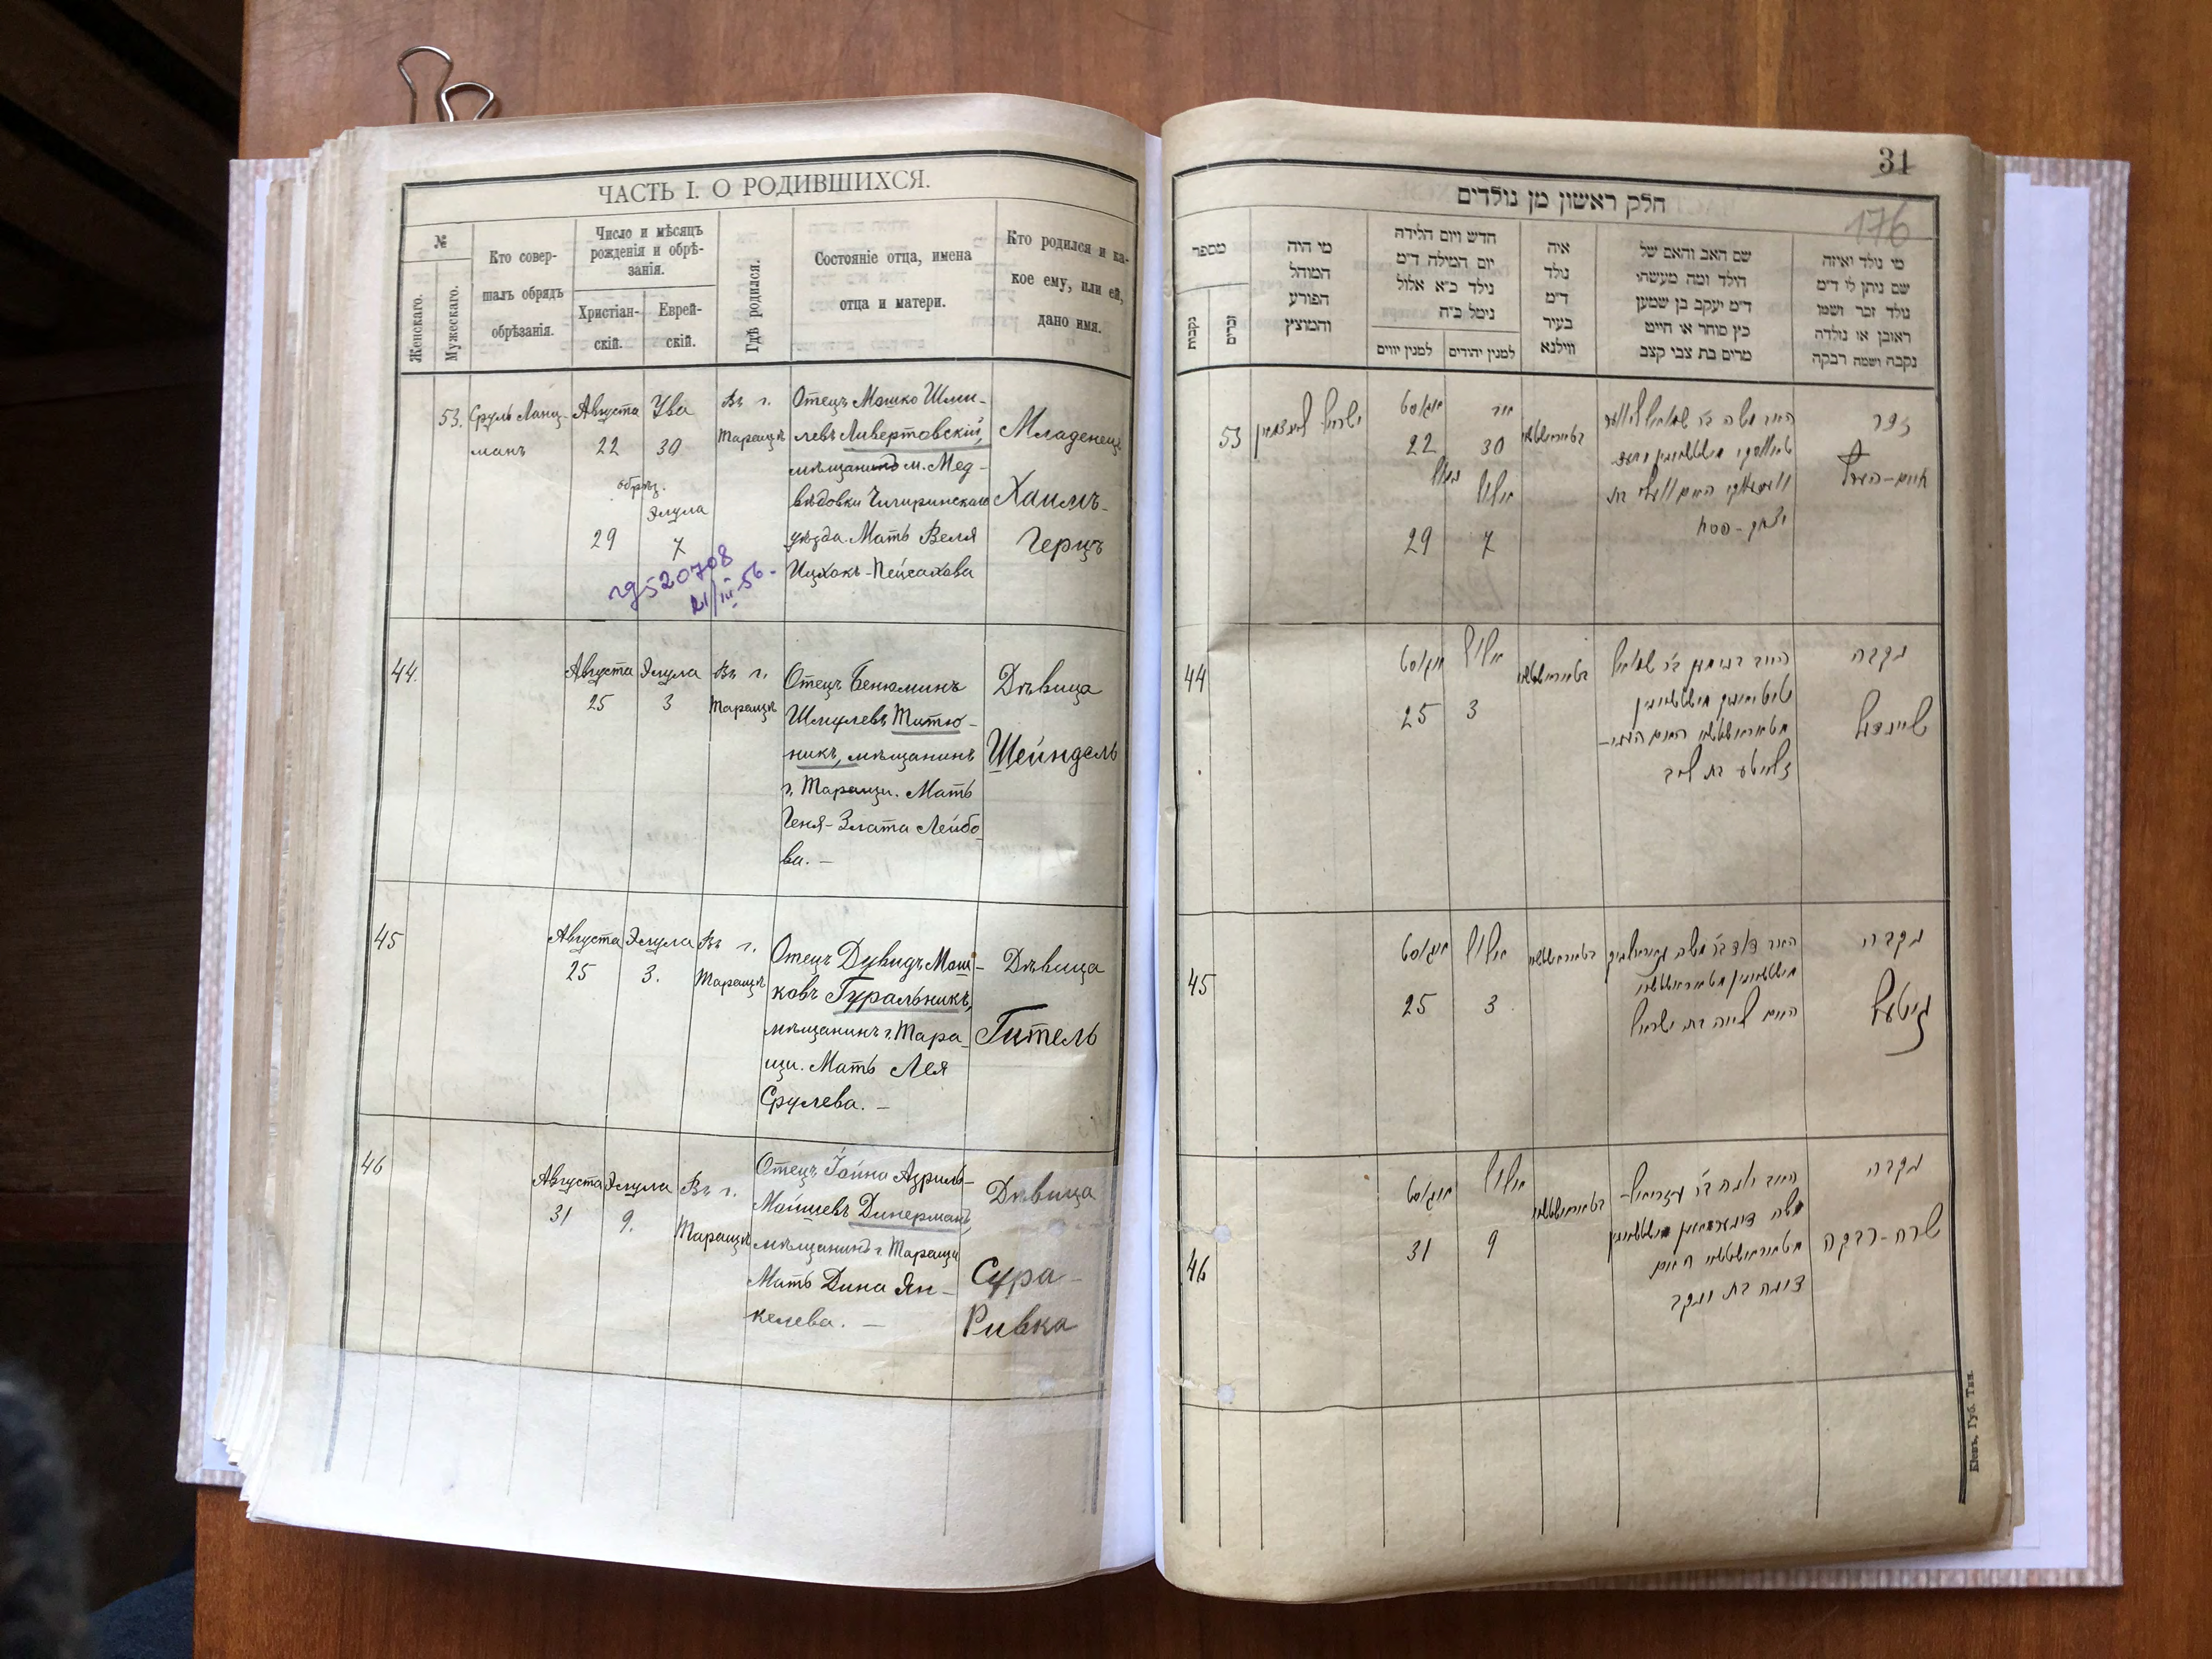 ЧАСТЬ I. О РОДИВШИХСЯ.
№
Женскаго.
Мужескаго.
Кто совер-
шалъ обрядъ
обрѣзанія.
Число и мѣсяцъ
рожденія и обрѣ-
занія.
Христіан-
скій.
Еврей-
скій.
Гдѣ родился.
Состояніе отца, имена
отца и матери.
Кто родился и ка-
кое ему, или ей,
дано имя.
53.
Сруль Ланц-
манъ
Августа
22
обрѣз.
29
Ува
30
Элула
7
Въ г.
Таращѣ
Отецъ Мошко Шми-
левъ Ливертовскій,
мѣщанинъ м. Мед-
вѣдовки Чигиринскаго
уѣзда. Мать Веля
Ицхокъ-Пейсахова
Младенецъ
Хаимъ-
Герцъ
520708
21/III 56.
44.
Августа
25
Элула
3
Въ г.
Таращѣ
Отецъ Бенюминъ
Шмулевъ Титю-
никъ, мѣщанинъ
г. Таращи. Мать
Геня-Злата Лейбо
ва. —
Дѣвица
Шейндель
45
Августа
25
Элула
3.
Въ г.
Таращѣ
Отецъ Дувидъ Мош-
ковъ Гуральникъ,
мѣщанинъ г. Тара
щи. Мать Лея
Срулева. —
Дѣвица
Гитель
46
Августа
31
Элула
9.
Въ г.
Таращѣ
Отецъ Іойна Азриль-
Мойшевъ Динерманъ,
мѣщанинъ г. Таращи
Мать Дина Ян-
келева. —
Дѣвица
Сура-
Ривка
31
176
חלק ראשון מן נולדים
מספר
נקבות
זכרים
מי היה
המוהל
הפורע
והמוצץ
חדש ויום הלידה
יום המילה ד״מ
נילד כ״א אלול
נימל כ״ח
למנין יווים
למנין יהודים
איה
נולד
ד״מ
בעיר
ווילנא
שם האב והאם של
הילד ומה מעשהו
ד״מ יעקב בן שמען
כץ סוחר או חייט
מרים בת צבי קצב
מי נולד ואיזה
שם ניתן לו ד״מ
נולד זכר ושמו
ראובן או נולדה
נקבה ושמה רבקה
53
ישראל לאנצמאן
אוגוסט
22
נימול
29
אב
30
אלול
7
זכר
חיים-הערץ
44
אוגוסט
25
אלול
3
נקבה
שיינדל
45
אוגוסט
25
אלול
3
האב דוד ב״ר משה גוראלניק
האם לאה בת ישראל
נקבה
גיטעל
46
אוגוסט
31
אלול
9
האב יונה ב״ר עזריאל-
דינה בת יעקב
נקבה
שרה-רבקה
Кіевъ, Губ. Тип.